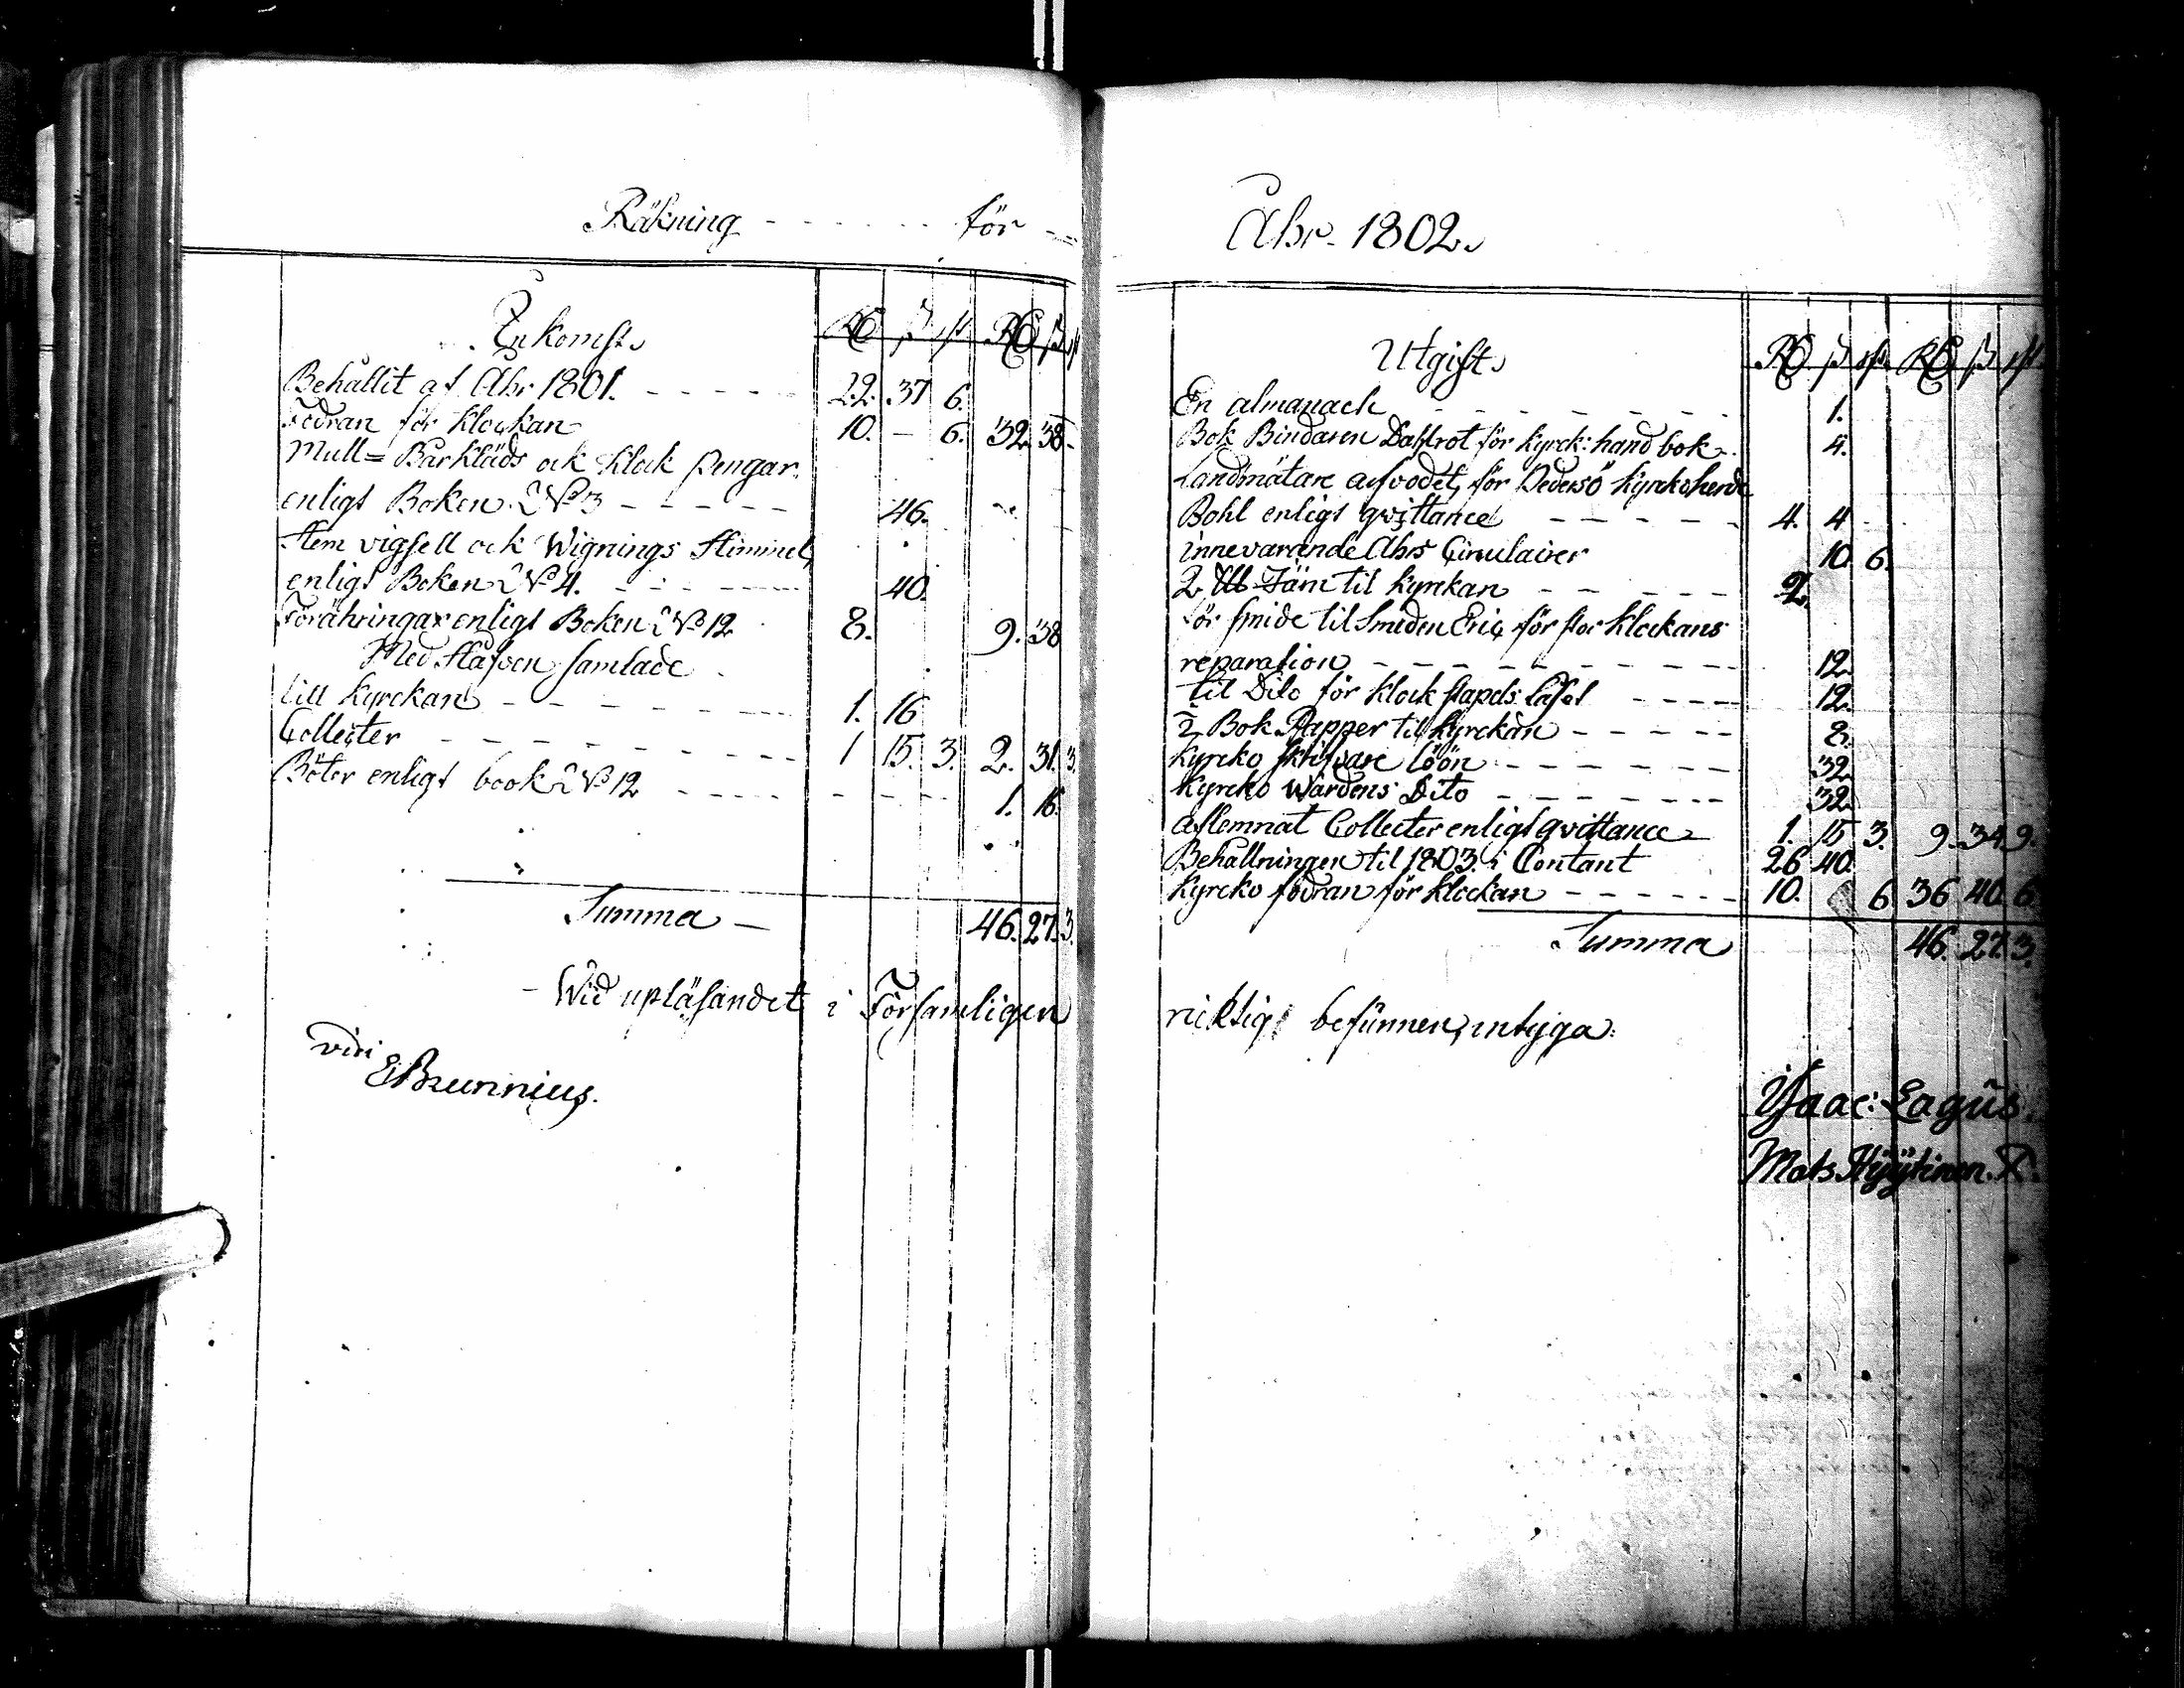 Räkning - - - - - - - för - -
Inkomst. RD ß rst RD ß rst
Behållit af Åhr 1801. - - - - - 22. 37 6.
Fodran för klockan 10. - 6. 32. 38 -
Mull= Bårkläds ock klock pengar
enligt Boken No 3 - - - - - 46.
Stem vigsell ock Wignings
enligt Boken No 4. - - - - - 40.
Förähringar enligt Boken No 12 8. 9. 38
Med Håfven samlade
till kyrckan - - - - - - - 1. 16
Collecter - - - - - - - - - 1 15. 3. 2. 31. 3.
Böter enligt book No 12 - - - - - - - - 1. 16.
Summa - 46. 27. 3.
- Wid upläsandet i Församligen
vidi
EBrunnius.
Åhr 1802.
Utgift. RD ß rst RD ß rst
En almanack - - - - - - - - 1.
Bok Bindaren Dahlrot för kyrck: hand bok - 4.
Landtmätare arfvodet, för Pedersö kyrckoherde
Bohl enligt qvittance - - - - - 4. 4 -
innevarande Åhrs Circulairer 10. 6.
2 Järn til kyrckan - - - - - 2.
för smide til Smeden Eric för stor klockans
reparation - - - - - - - - - 12.
til Dito för klock stapels Låset - - - - - 12.
2 Bok Papper til kyrckan - - - - - 8.
kyrcko skrifvare löön - - - - - - - 32.
kyrcko Wärdens Dito - - - - - - - 32.
aflemnat Collecter enligt qvittance - 1. 15 3. 9. 34. 9.
Behållningen til 1803. i Contant 26 40.
kyrcko fodran för klockan - - - - - - 10. 6 36 40. 6.
Summa 46. 27. 3.
riktigt befunnen, intyga:
Isaac: Lagus.
Mats Hyytinen.